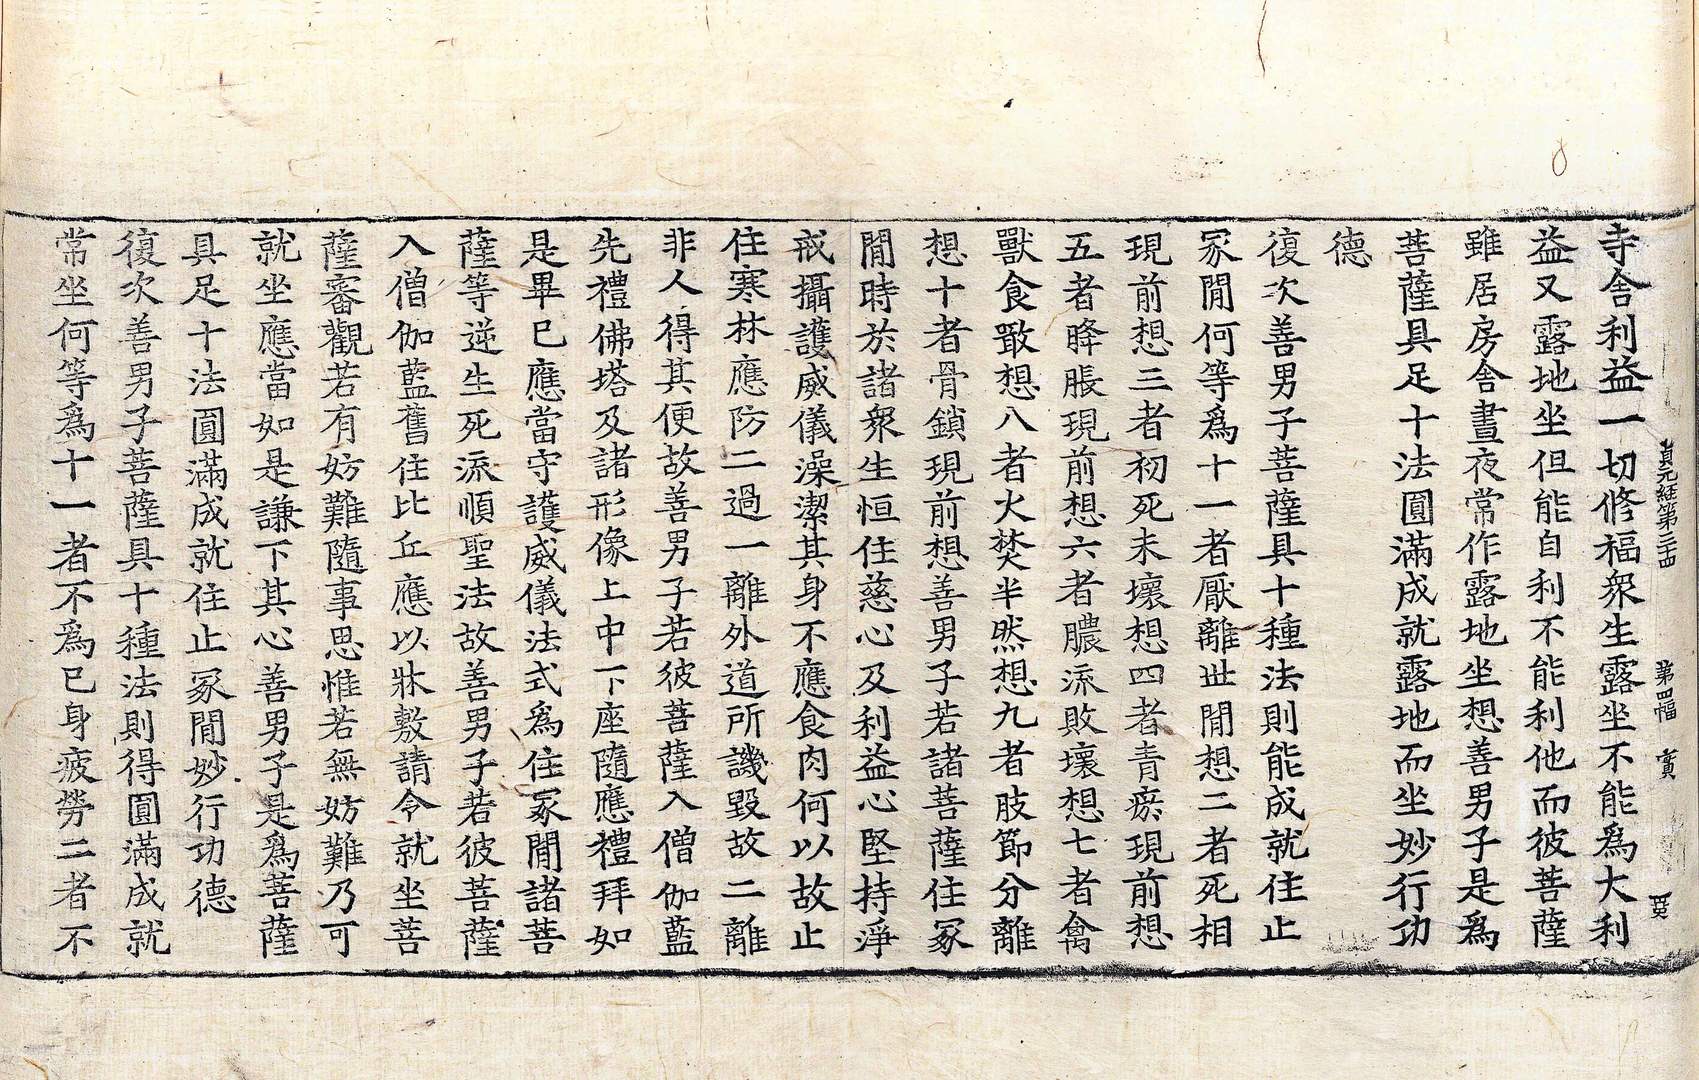 貞元經第二十四　第四幅　實
寺舍利益一切修福衆生露坐不能爲大利
益又露地坐但能自利不能利他而彼菩薩
雖居房舍晝夜常作露地坐想善男子是爲
菩薩具足十法圓滿成就露地而坐妙行功
德
復次善男子菩薩具十種法則能成就住止
冢閒何等爲十一者厭離世閒想二者死相
現前想三者初死未壞想四者青瘀現前想
五者降脹現前想六者膿流敗壞想七者禽
獸食噉想八者火焚半㷊想九者肢節分離
想十者骨鎖現前想善男子若諸菩薩住冢
閒時於諸衆生恒住慈心及利益心堅持淨
戒攝護威儀澡潔其身不應食肉何以故止
住寒林應防二過一離外道所譏毀故二離
非人得其便故善男子若彼菩薩入僧伽藍
先禮佛塔及諸形像上中下座隨應禮拜如
是畢已應當守護威儀法式爲住冢閒諸菩
薩等逆生死流順聖法故善男子若彼菩薩
入僧伽藍舊住比丘應以牀敷請令就坐菩
薩審觀若有妨難隨事思惟若無妨難乃可
就坐應當如是謙下其心善男子是爲菩薩
具足十法圓滿成就住止冢閒妙行功德
復次善男子菩薩具十種法則得圓滿成就
常坐何等爲十一者不爲已身疲勞二者不